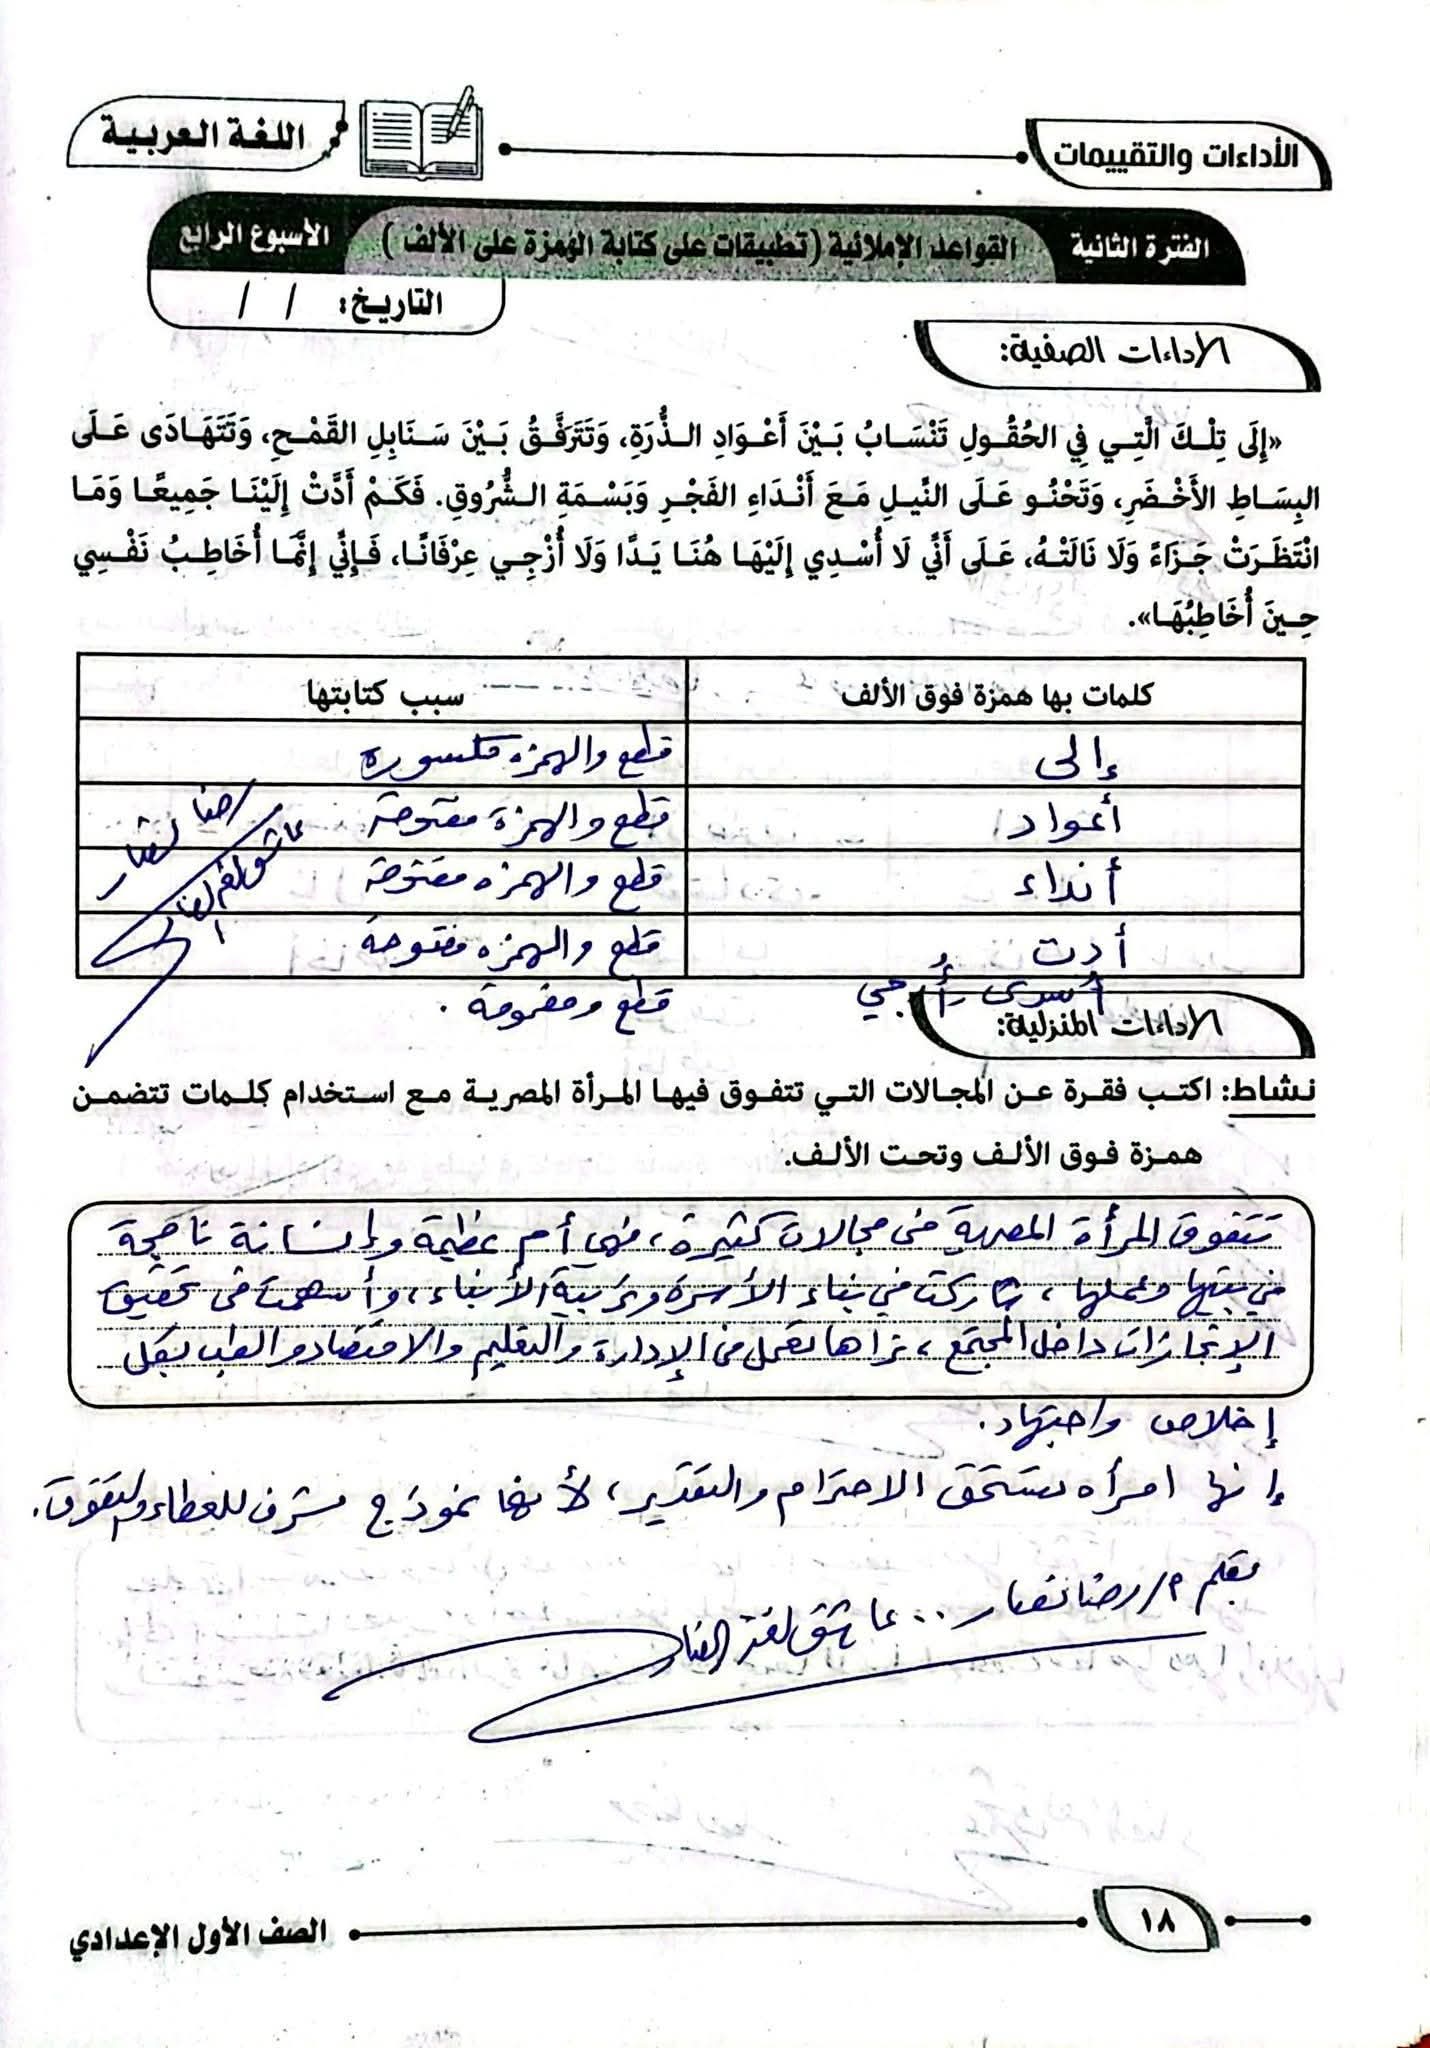 الأداءات والتقييمات
اللغة العربية
الفترة الثانية
القواعد الإملائية (تطبيقات على كتابة الهمزة على الألف)
الأسبوع الرابع
التاريخ: / /
الأداءات الصفية:
«إِلَى تِلْكَ الَّتِي فِي الحُقُولِ تَنْسَابُ بَيْنَ أَعْوَادِ الذُّرَةِ، وَتَتَرَفَّقُ بَيْنَ سَنَابِلِ القَمْحِ، وَتَتَهَادَى عَلَى
البِسَاطِ الأَخْضَرِ، وَتَحْنُو عَلَى النِّيلِ مَعَ أَنْدَاءِ الفَجْرِ وَبَسْمَةِ الشُّرُوقِ. فَكَمْ أَدَّتْ إِلَيْنَا جَمِيعًا وَمَا
انْتَظَرَتْ جَزَاءً وَلَا نَالَتْهُ، عَلَى أَنِّي لَا أُسْدِي إِلَيْهَا هُنَا يَدًا وَلَا أُزْجِي عِرْفَانًا، فَإِنِّي إِنَّمَا أُخَاطِبُ نَفْسِي
حِينَ أُخَاطِبُهَا».
كلمات بها همزة فوق الألف
سبب كتابتها
إلى
قطع والهمزه مكسوره
أعواد
قطع والهمزة مفتوحة
أنداء
قطع والهمزه مفتوحة
أدت
قطع والهمزه مفتوحة
أُسدى - أُزجي
قطع ومضمومة .
رضا نصار
عاشق لغة الضاد
الأداءات المنزلية:
نشاط: اكتب فقرة عن المجالات التي تتفوق فيها المرأة المصرية مع استخدام كلمات تتضمن
همزة فوق الألف وتحت الألف.
تتفوق المرأة المصرية فى مجالات كثيرة، فهي أم عظيمة وإنسانة ناجحة
في بيتها وعملها، شاركت في بناء الأسرة وتربية الأبناء، وأسهمت فى تحقيق
الإنجازات داخل المجتمع، نراها تعمل فى الإدارة والتعليم والاقتصاد والطب بكل
إخلاص واجتهاد.
إنها امرأه تستحق الاحترام والتقدير، لأنها نموذج مشرف للعطاء والتفوق.
بقلم م/ رضا نصار .. عاشق لغة الضاد
١٨
الصف الأول الإعدادي